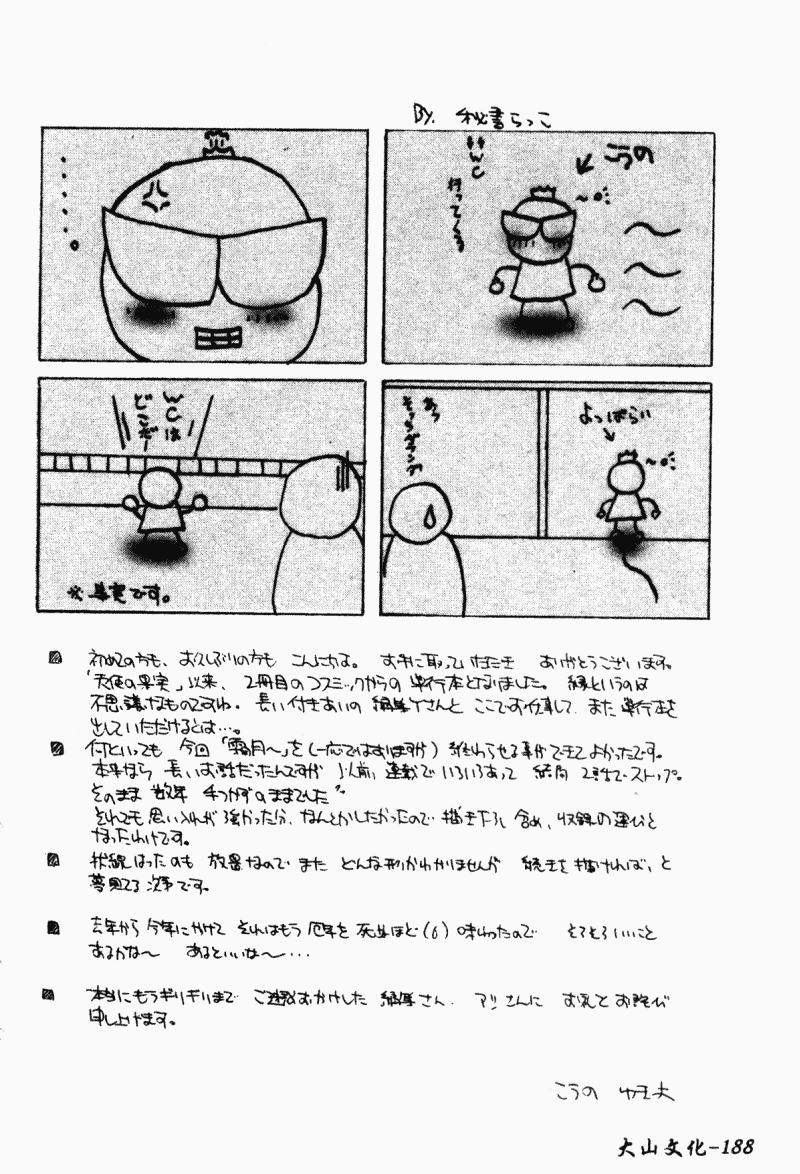 By. 秘書らっこ
こうの
WC
行ってくる
よっぱらい
あっ
そっちベランダ
WCは
どこだ
※事実です。
初めての方も、お久しぶりの方も こんにちは。 お手に取っていただき ありがとうございます。
「天使の果実」以来、2冊目のコスミックからの 単行本となりました。 縁というのは
不思議なものですね。長い付きあいの 編集Yさんと ここでお仕事して、また単行本を
出していただけるとは…。
何といっても 今回「霜月〜」を(一応ではありますが) 終わらせる事ができてよかったです。
本来なら 長いお話だったんですが 以前、連載で いろいろあって 結局 2話でストップ。
そのまま 数年 手つかずのままでした
それでも思い入れが強かった分、なんとかしたかったので 描き下ろし含め、収録の運びと
なったわけです。
伏線はったのも 放置なので また どんな形かわかりませんが 続きを描ければ、と
夢見てる次第です。
去年から 今年にかけて それはもう 厄年を 死ぬほど(6) 味わったので そろそろいいこと
あるかな〜 あるといいな〜…
本当にもうギリギリまで ご迷惑おかけした 編集さん、 アシさんに お礼とお詫び
申し上げます。
こうの ゆき夫
大山文化-188